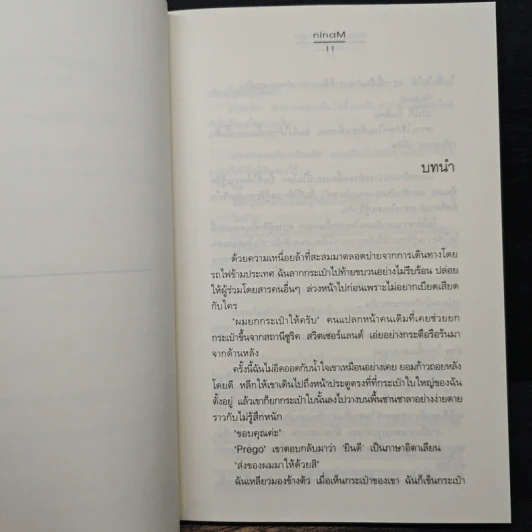 Manin
11
บทนำ
ด้วยความเหนื่อยล้าที่สะสมมาตลอดบ่ายจากการเดินทางโดย
รถไฟข้ามประเทศ ฉันลากกระเป๋าไปท้ายขบวนอย่างไม่รีบร้อน ปล่อย
ให้ผู้ร่วมโดยสารคนอื่นๆ ล่วงหน้าไปก่อนเพราะไม่อยากเบียดเสียด
กับใคร
'ผมยกกระเป๋าให้ครับ' คนแปลกหน้าคนเดิมที่เคยช่วยยก
กระเป๋าขึ้นจากสถานีซูริค สวิตเซอร์แลนด์ เอ่ยอย่างกระตือรือร้นมา
จากด้านหลัง
ครั้งนี้ฉันไม่อิดออดกับน้ำใจเขาเหมือนอย่างเคย ยอมก้าวถอยหลัง
โดยดี หลีกให้เขาเดินไปถึงหน้าประตูตรงที่ที่กระเป๋าใบใหญ่ของฉัน
ตั้งอยู่ แล้วเขาก็ยกกระเป๋าใบนั้นลงไปวางบนพื้นชานชาลาอย่างง่ายดาย
ราวกับไม่รู้สึกหนัก
'ขอบคุณค่ะ'
'Prego' เขาตอบกลับมาว่า 'ยินดี' เป็นภาษาอิตาเลียน
'ส่งของผมมาให้ด้วยสิ'
ฉันเหลียวมองข้างตัว เมื่อเห็นกระเป๋าของเขา ฉันก็เข็นกระเป๋า